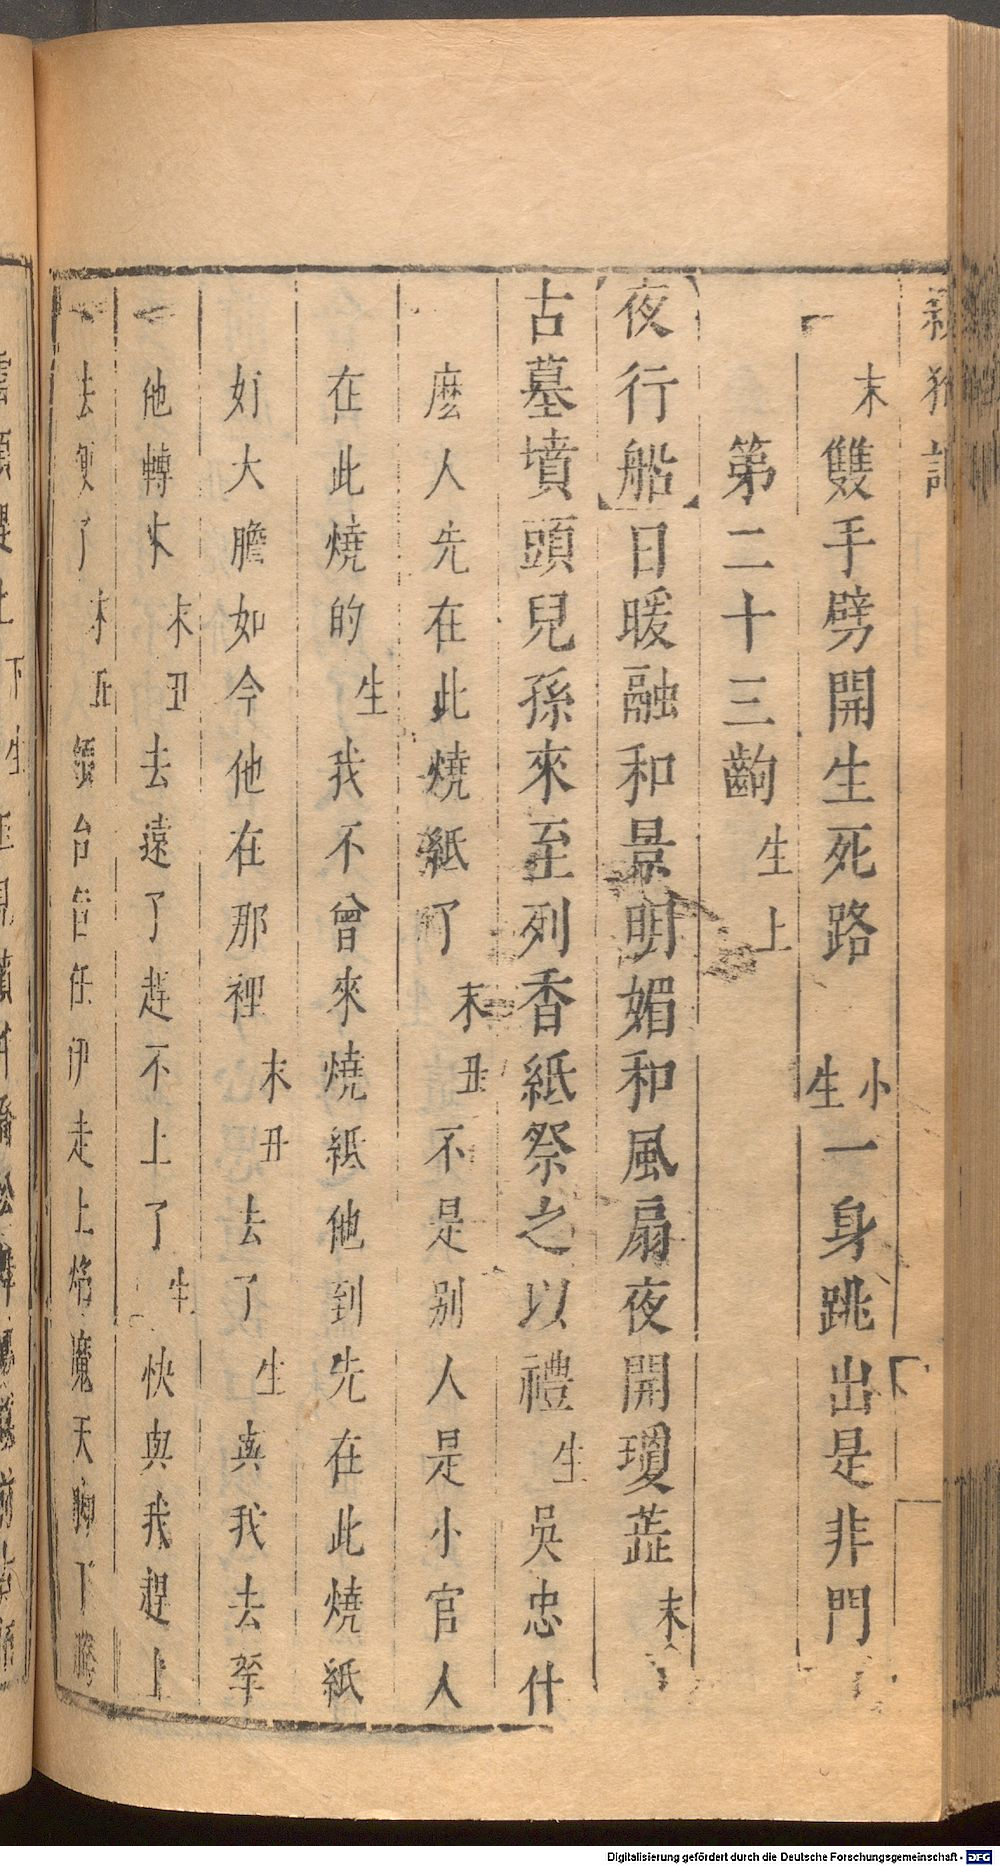 殺狗記
末 雙手劈開生死路 小生 一身跳出是非門
第二十三齣 生上
夜行船 日暖融和景明媚和風扇夜開瓊蕋 末
古墓墳頭兒孫來至列香紙祭之以禮 生 吳忠什
麽人先在此燒紙了 末丑 不是别人是小官人
在此燒的 生 我不曾來燒紙他到先在此燒紙
好大膽如今他在那裡 末丑 去了 生 與我去拏
他轉來 末丑 去遠了趕不上了 生 快與我趕上
去便了 末丑 領台旨任伊走上焰魔天脚下騰
Digitalisierung gefördert durch die Deutsche Forschungsgemeinschaft - DFG